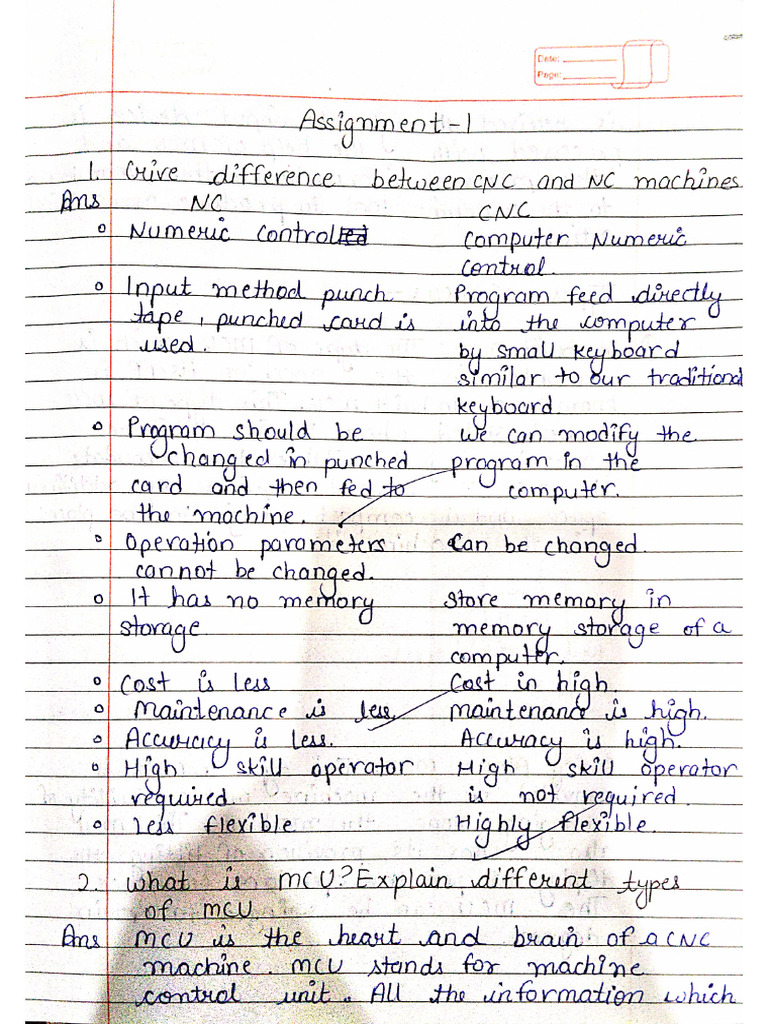 Date:
Page:
Assignment-1
1. Give difference between CNC and NC machines
Ans NC CNC
Numeric Control Computer Numeric
Control.
Input method punch Program feed directly
tape, punched card is into the computer
used. by small keyboard
similar to our traditional
keyboard.
Program should be We can modify the
changed in punched program in the
card and then fed to computer.
the machine.
Operation parameters Can be changed.
cannot be changed.
It has no memory Store memory in
storage memory storage of a
computer.
Cost is less Cost in high.
Maintenance is less. maintenance is high.
Accurciacy is less. Accuracy is high.
High skill operator High skill operator
required is not required.
Less flexible Highly flexible.
2. What is MCU? Explain different types
of MCU.
Ans MCU is the heart and brain of a CNC
machine. MCU stands for machine
control unit. All the information which